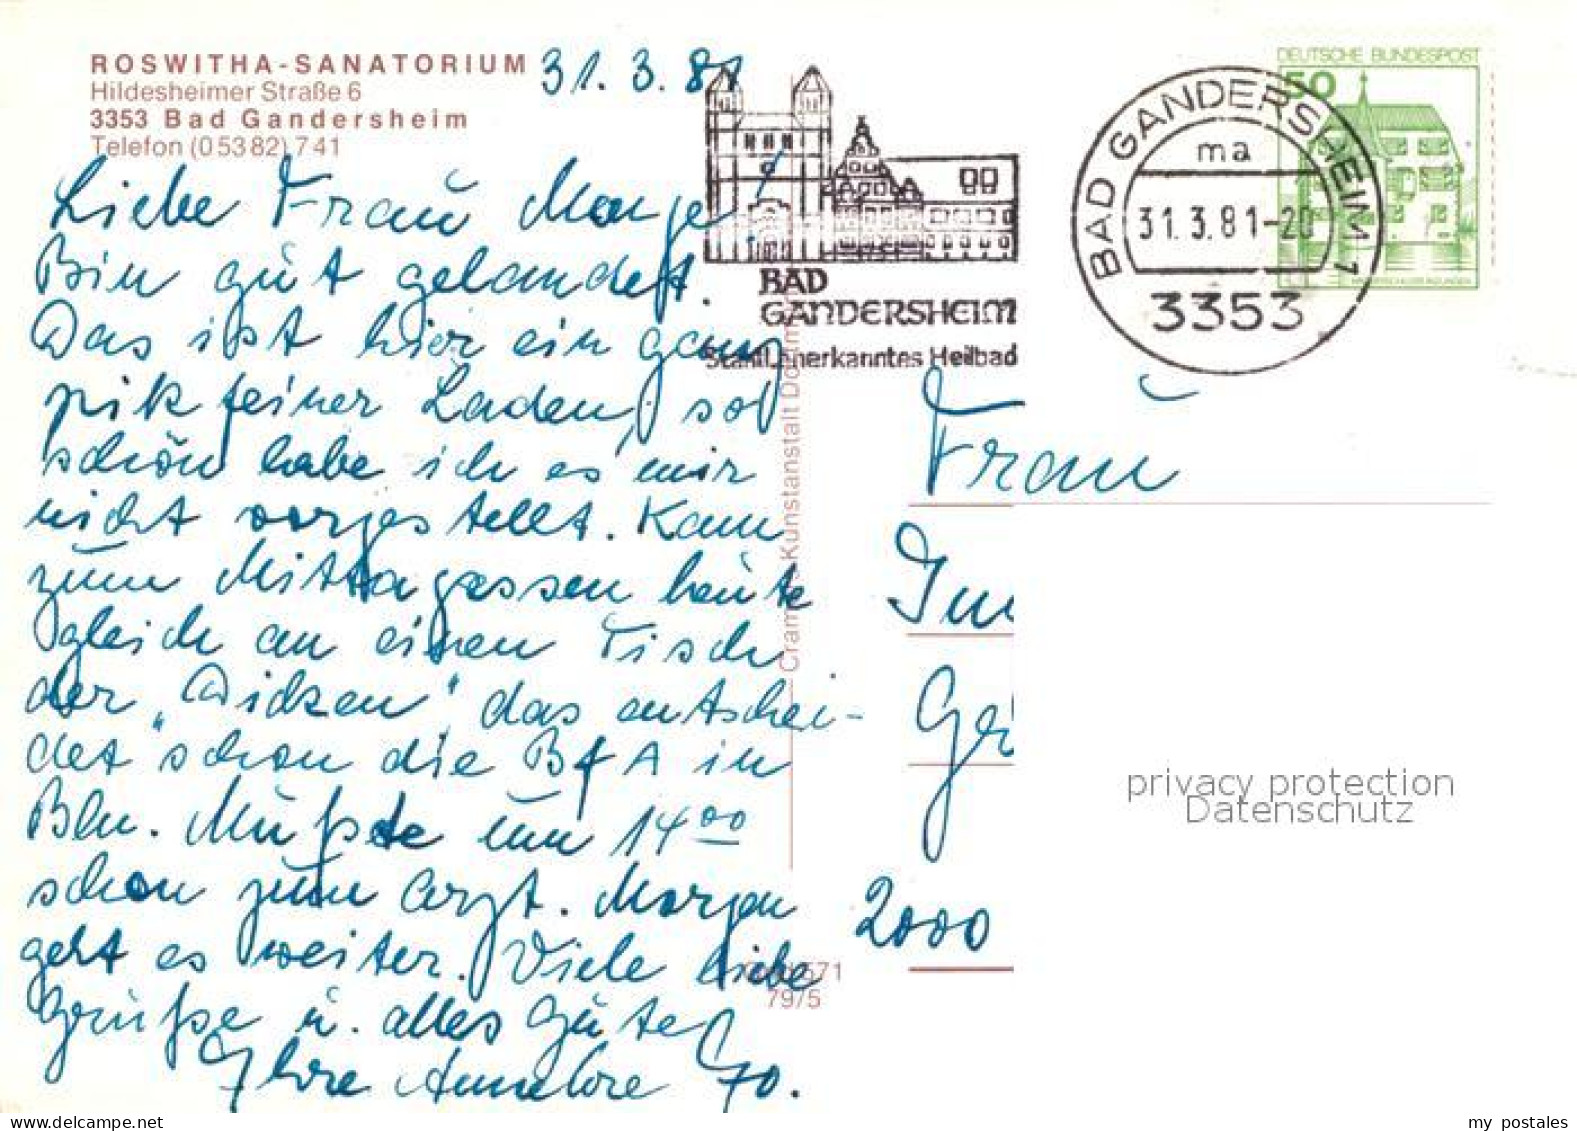 ROSWITHA-SANATORIUM
Hildesheimer Straße 6
3353 Bad Gandersheim
Telefon (05382) 741
31.3.81
Liebe Frau
Bin gut gelandet.
Das ist hier ein ganz
pikfeiner Laden, so
schön habe ich es mir
nicht vorgestellt. Kam
zum Mittagessen heute
gleich an einen Tisch
der „Dicken" das entschei-
det schon die BfA in
Bln. Mußte um 14 00
schon zum Arzt. Morgen
geht es weiter. Viele liebe
Grüße u. alles Gute
Ihre Annelore
BAD
GANDERSHEIM
Staatl. anerkanntes Heilbad
DEUTSCHE BUNDESPOST
50
BAD GANDERSHEIM 1
ma
31.3.81-20
3353
Frau
2000
Cramers Kunstanstalt
571
79/5
privacy protection
Datenschutz
my postales